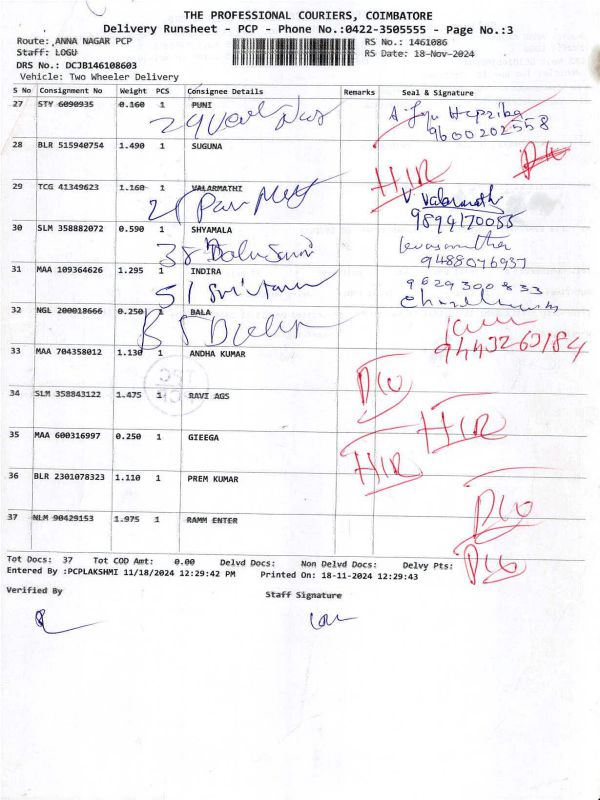 THE PROFESSIONAL COURIERS, COIMBATORE
Delivery Runsheet - PCP - Phone No.:0422-3505555 - Page No.:3
Route: ANNA NAGAR PCP RS No.: 1461086
Staff: LOGU RS Date: 18-Nov-2024
DRS No.: DCJB146108603
Vehicle: Two Wheeler Delivery
S No Consignment No Weight PCS Consignee Details Remarks Seal & Signature
27 STY 6090935 0.160 1 PUNI
9600202558
28 BLR 515940754 1.490 1 SUGUNA
HIR
29 TCG 41349623 1.160 1 VALARMATHI V. Valarmathi
9894170055
30 SLM 358882072 0.590 1 SHYAMALA
9488076937
31 MAA 109364626 1.295 1 INDIRA 9629300833
32 NGL 200018666 0.250 1 BALA
9443263184
33 MAA 704358012 1.130 1 ANDHA KUMAR
34 SLM 358843122 1.475 1 RAVI AGS
HIR
35 MAA 600316997 0.250 1 GIEEGA
HIR
36 BLR 2301078323 1.110 1 PREM KUMAR
37 NLM 90429153 1.975 1 RAMM ENTER
Tot Docs: 37 Tot COD Amt: 0.00 Delvd Docs: Non Delvd Docs: Delvy Pts:
Entered By :PCPLAKSHMI 11/18/2024 12:29:42 PM Printed On: 18-11-2024 12:29:43
Verified By Staff Signature